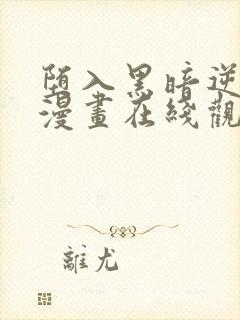 陌入黑暗逆
漫畫在綫觀
離尤